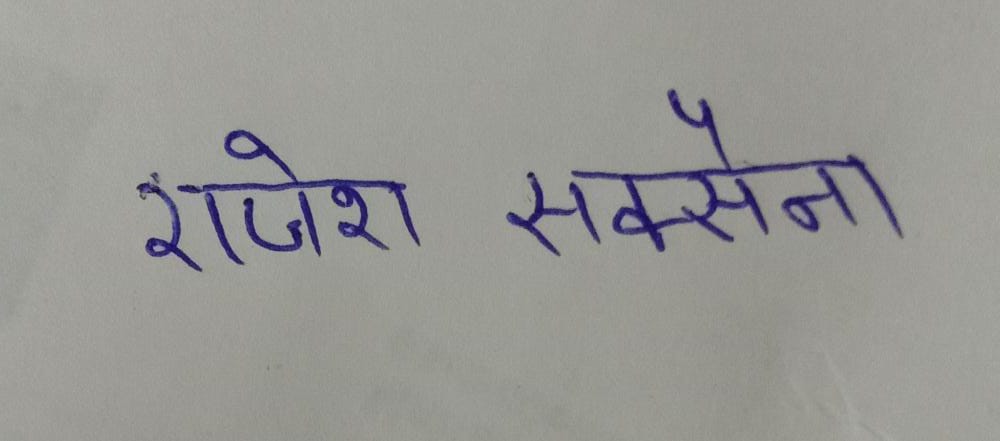 राजेश सक्सैना